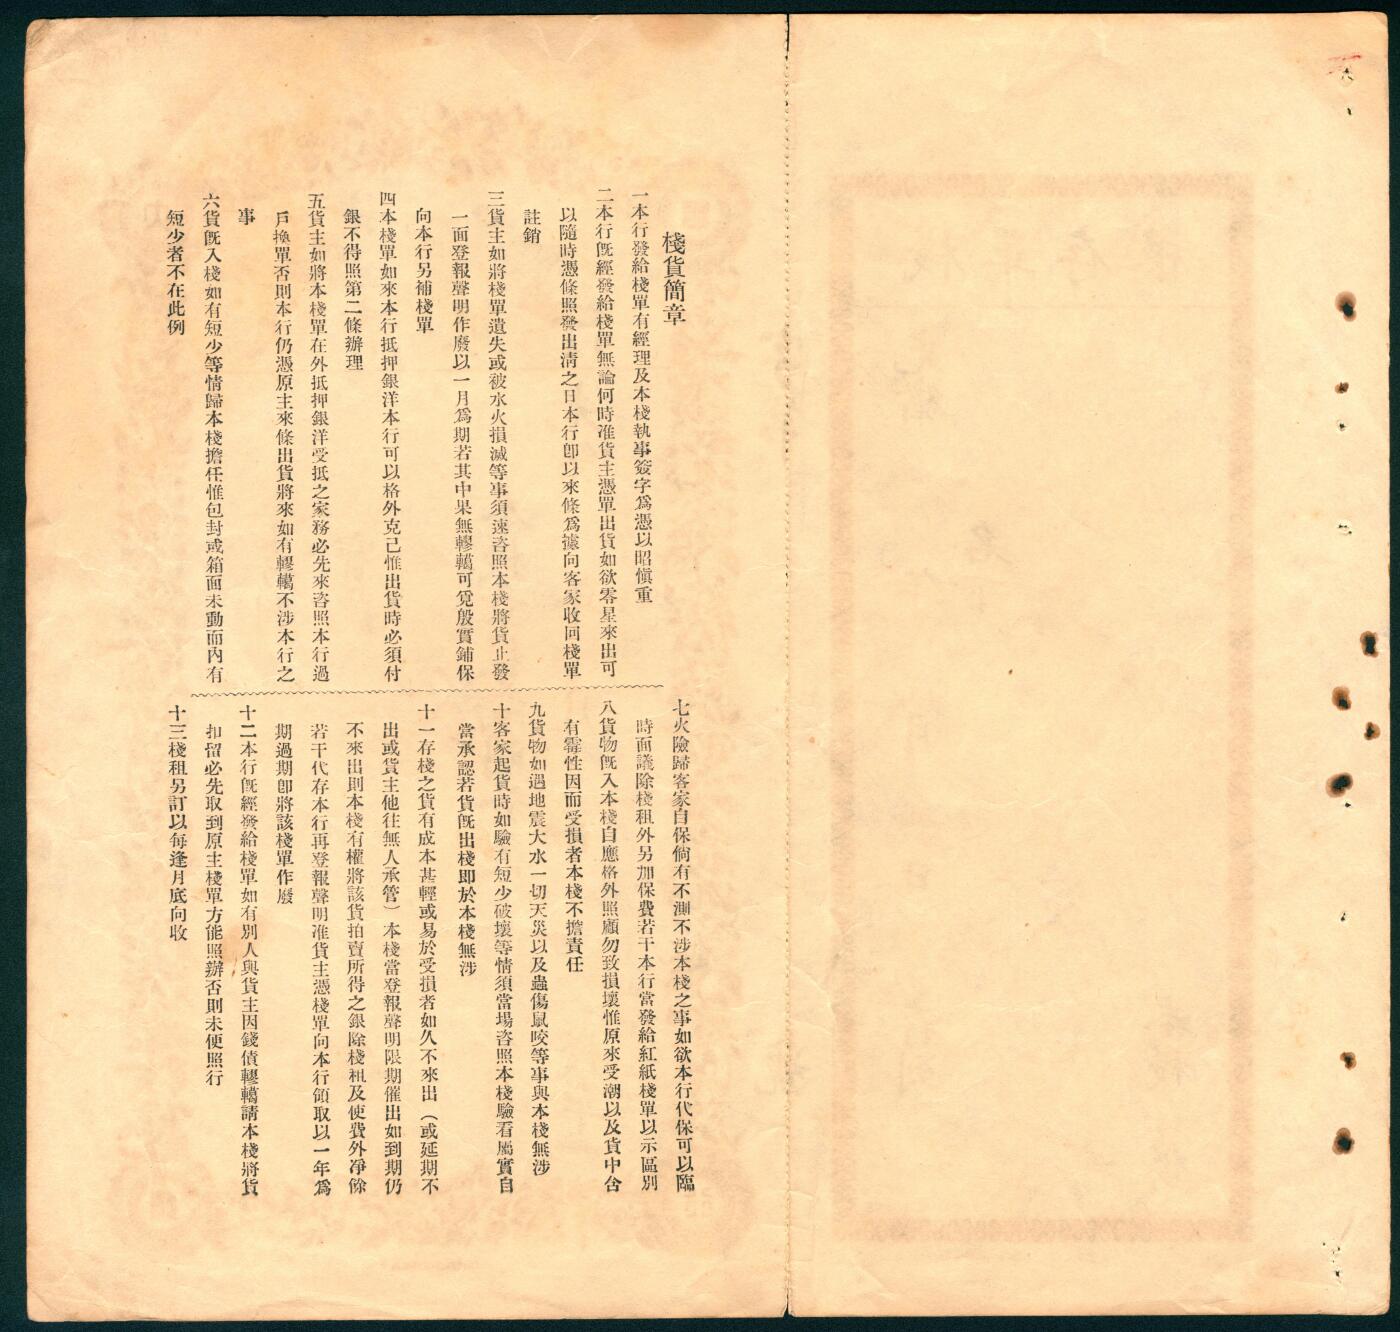 棧貨簡章
一本行發給棧單有經理及本棧執事簽字爲憑以昭愼重
二本行旣經發給棧單無論何時准貨主憑單出貨如欲零星來出可
以隨時憑條照發出淸之日本行卽以來條爲據向客家收回棧單
註銷
三貨主如將棧單遺失或被水火損滅等事須速咨照本棧將貨止發
一面登報聲明作廢以一月爲期若其中果無轇轕可覓殷實鋪保
向本行另補棧單
四本棧單如來本行抵押銀洋本行可以格外克己惟出貨時必須付
銀不得照第二條辦理
五貨主如將本棧單在外抵押銀洋受抵之家務必先來咨照本行過
戶換單否則本行仍憑原主來條出貨將來如有轇轕不涉本行之
事
六貨旣入棧如有短少等情歸本棧擔任惟包封或箱面未動而內有
短少者不在此例
七火險歸客家自保倘有不測不涉本棧之事如欲本行代保可以臨
時面議除棧租外另加保費若干本行當發給紅紙棧單以示區別
八貨物旣入本棧自應格外照顧勿致損壞惟原來受潮以及貨中含
有霉性因而受損者本棧不擔責任
九貨物如遇地震大水一切天災以及蟲傷鼠咬等事與本棧無涉
十客家起貨時如驗有短少破壞等情須當場咨照本棧驗看屬實自
當承認若貨旣出棧即於本棧無涉
十一存棧之貨有成本甚輕或易於受損者如久不來出（或延期不
出或貨主他往無人承管）本棧當登報聲明限期催出如到期仍
不來出則本棧有權將該貨拍賣所得之銀除棧租及使費外凈餘
若干代存本行再登報聲明准貨主憑棧單向本行領取以一年爲
期過期卽將該棧單作廢
十二本行旣經發給棧單如有別人與貨主因錢債轇轕請本棧將貨
扣留必先取到原主棧單方能照辦否則未便照行
十三棧租另訂以每逢月底向收